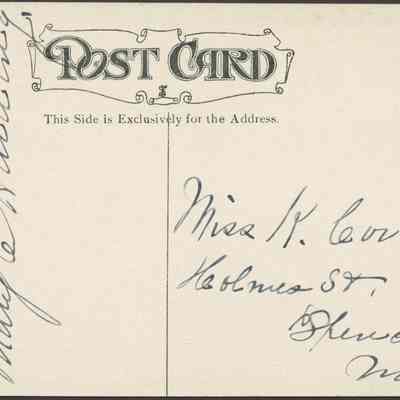 POST CARD
This Side is Exclusively for the Address.
Miss K. Cor
Holmes St.
Spenc
Mary